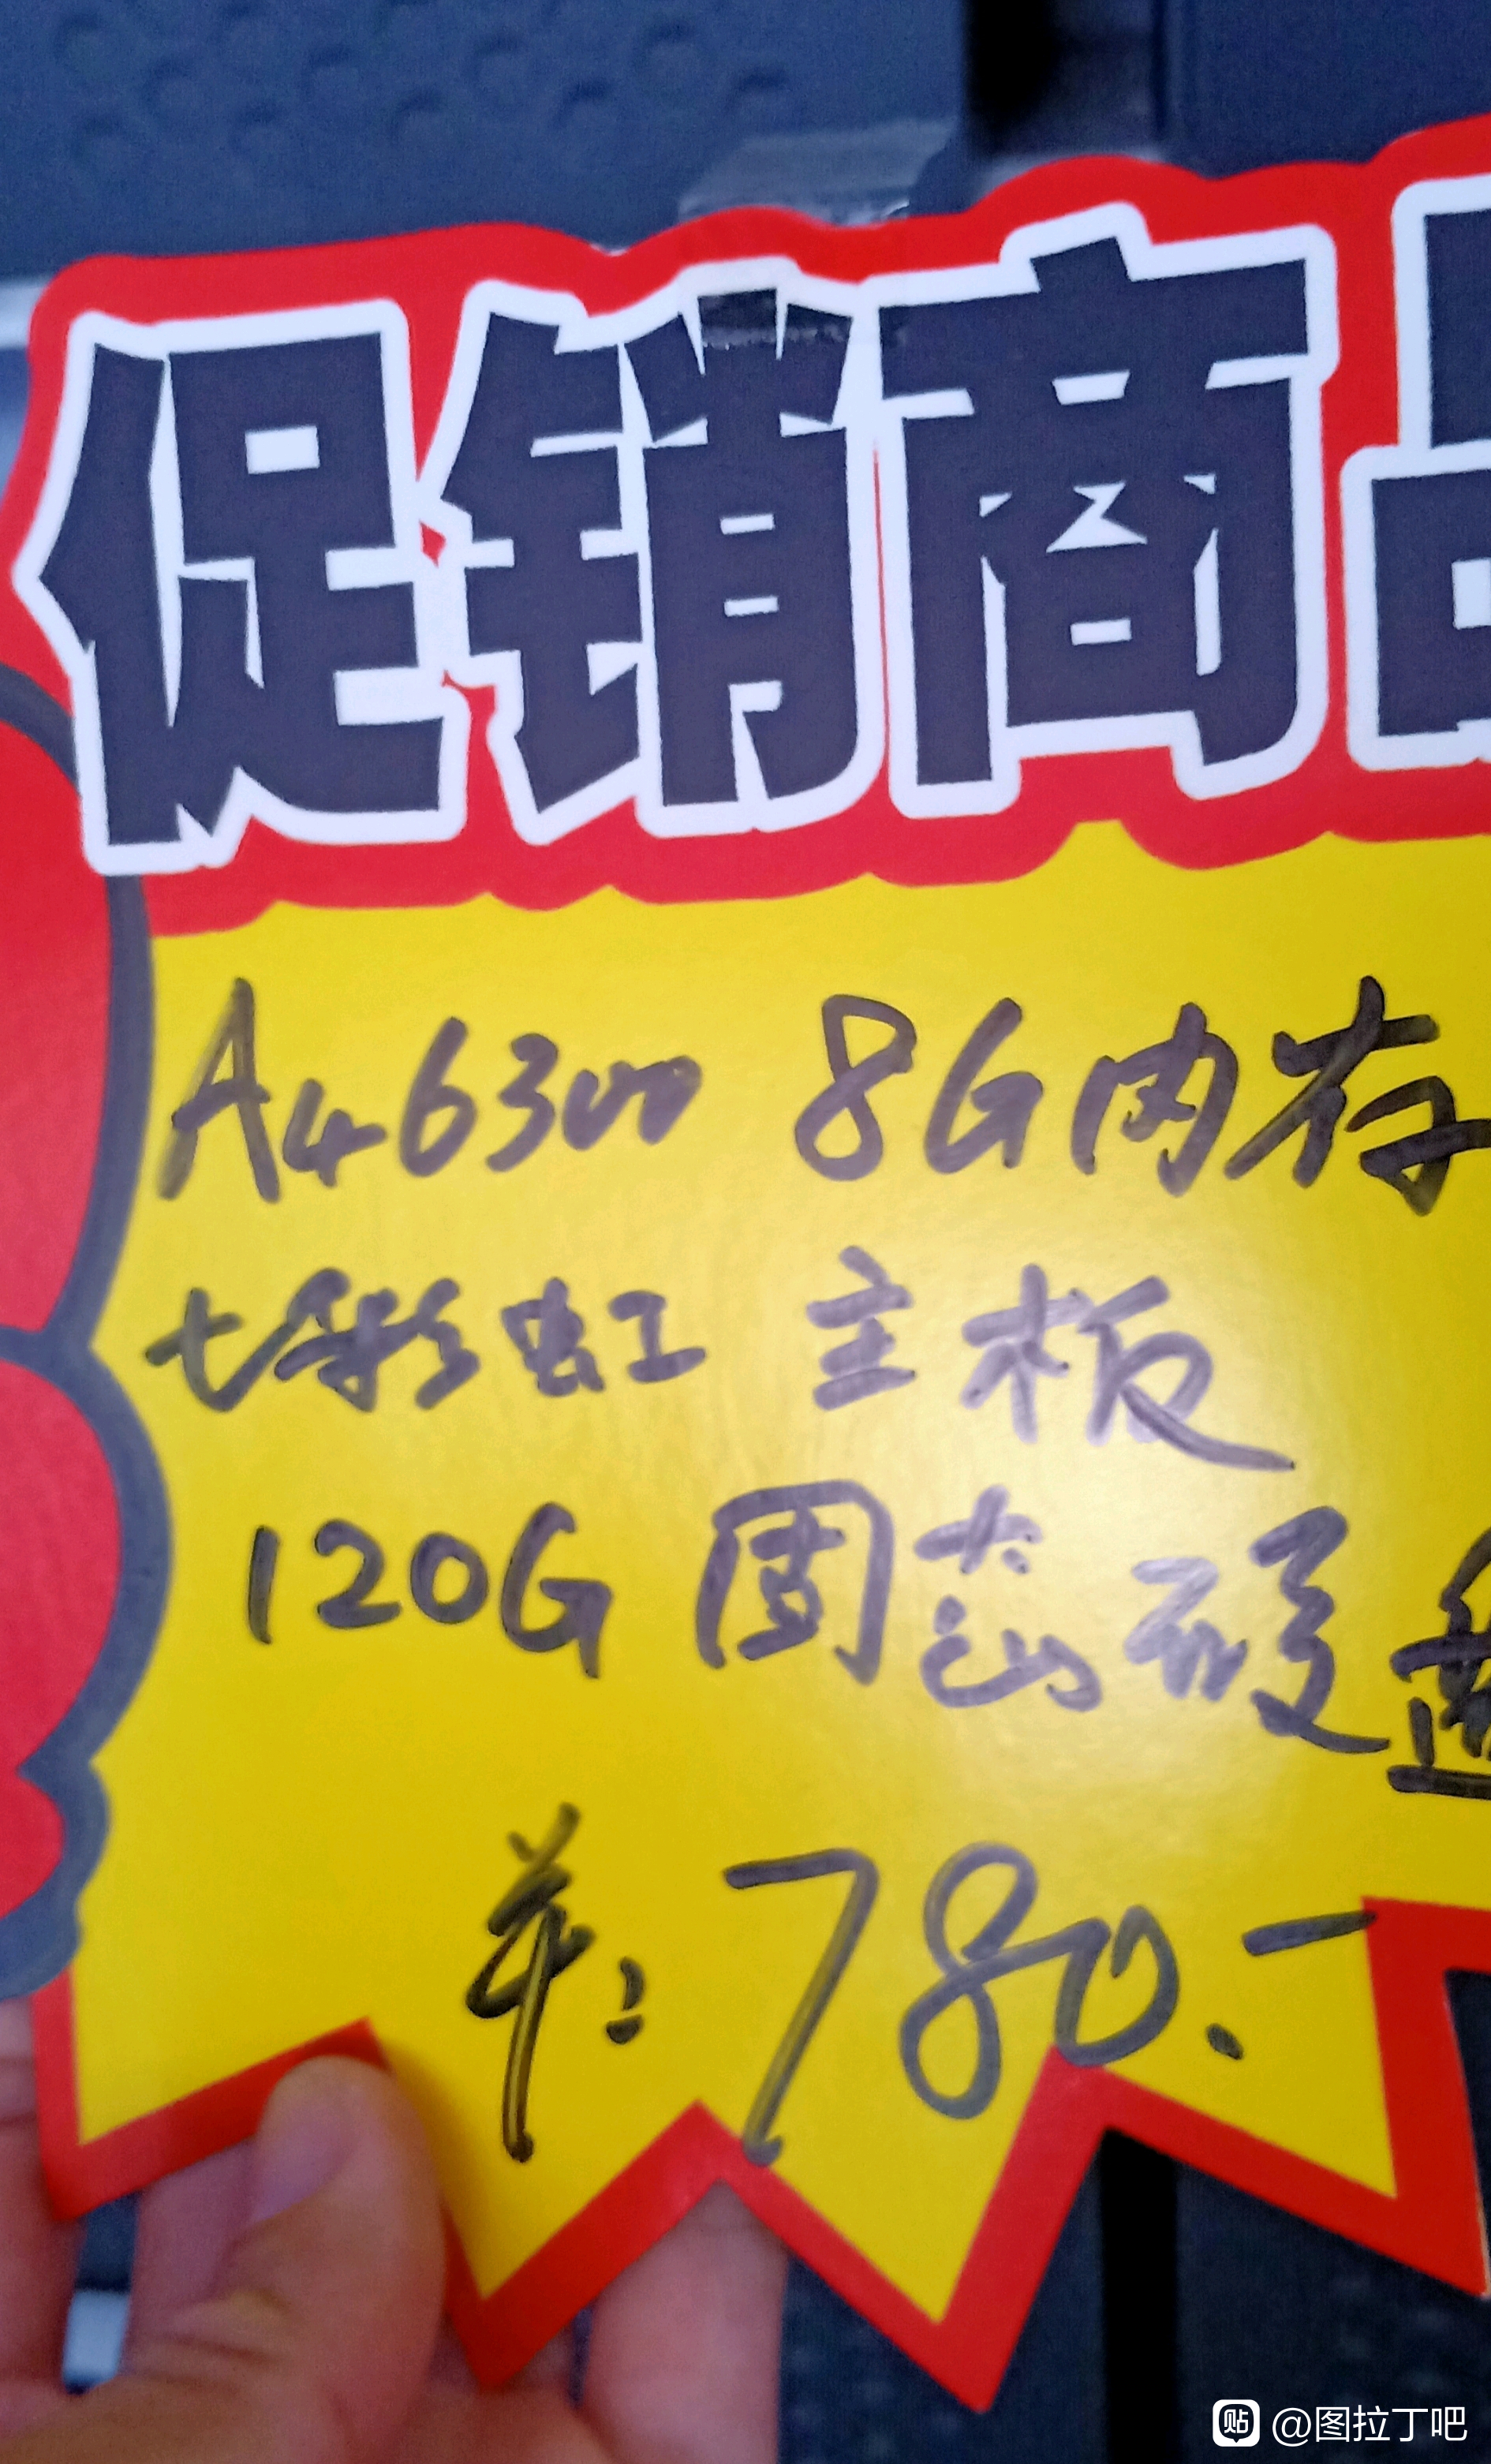 促销商品
A4 6300 8G内存
七彩虹 主板
120G 固态硬盘
单: 780.-
贴 @图拉丁吧